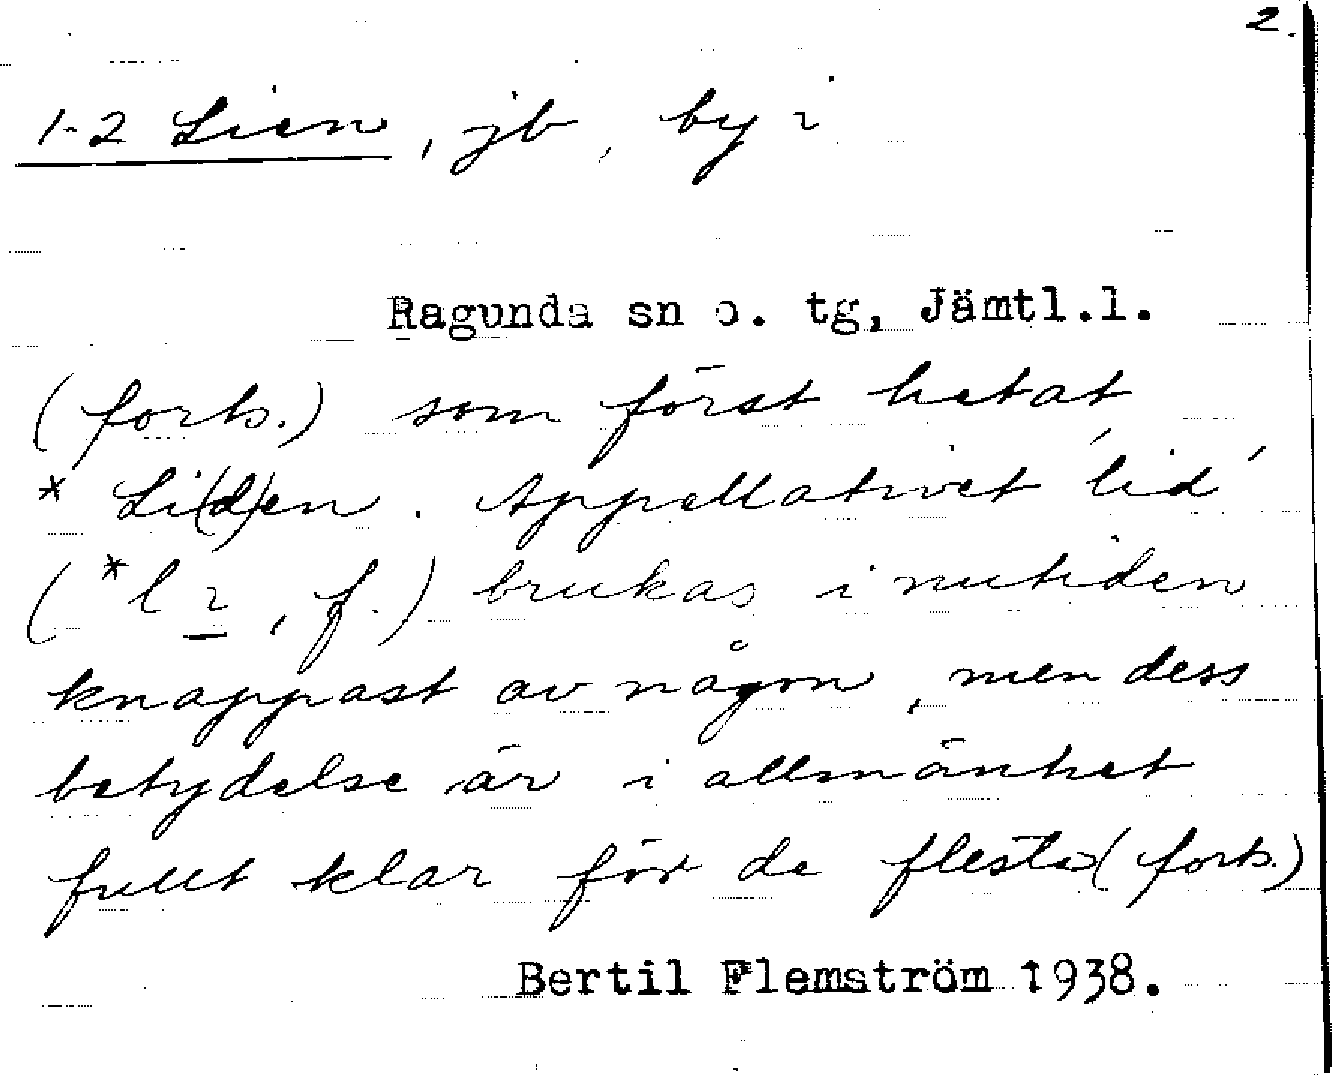 2.
1-2 Lien, jb, by i
Ragunda sn o. tg, Jämtl.l.
(forts.) som först hetat
* Li(d)en. Appellativet 'lid'
(*lı, f.) brukas i nutiden
knappast av någon, men dess
betydelse är i allmänhet
fullt klar för de flesta (forts.)
Bertil Flemström 1938.